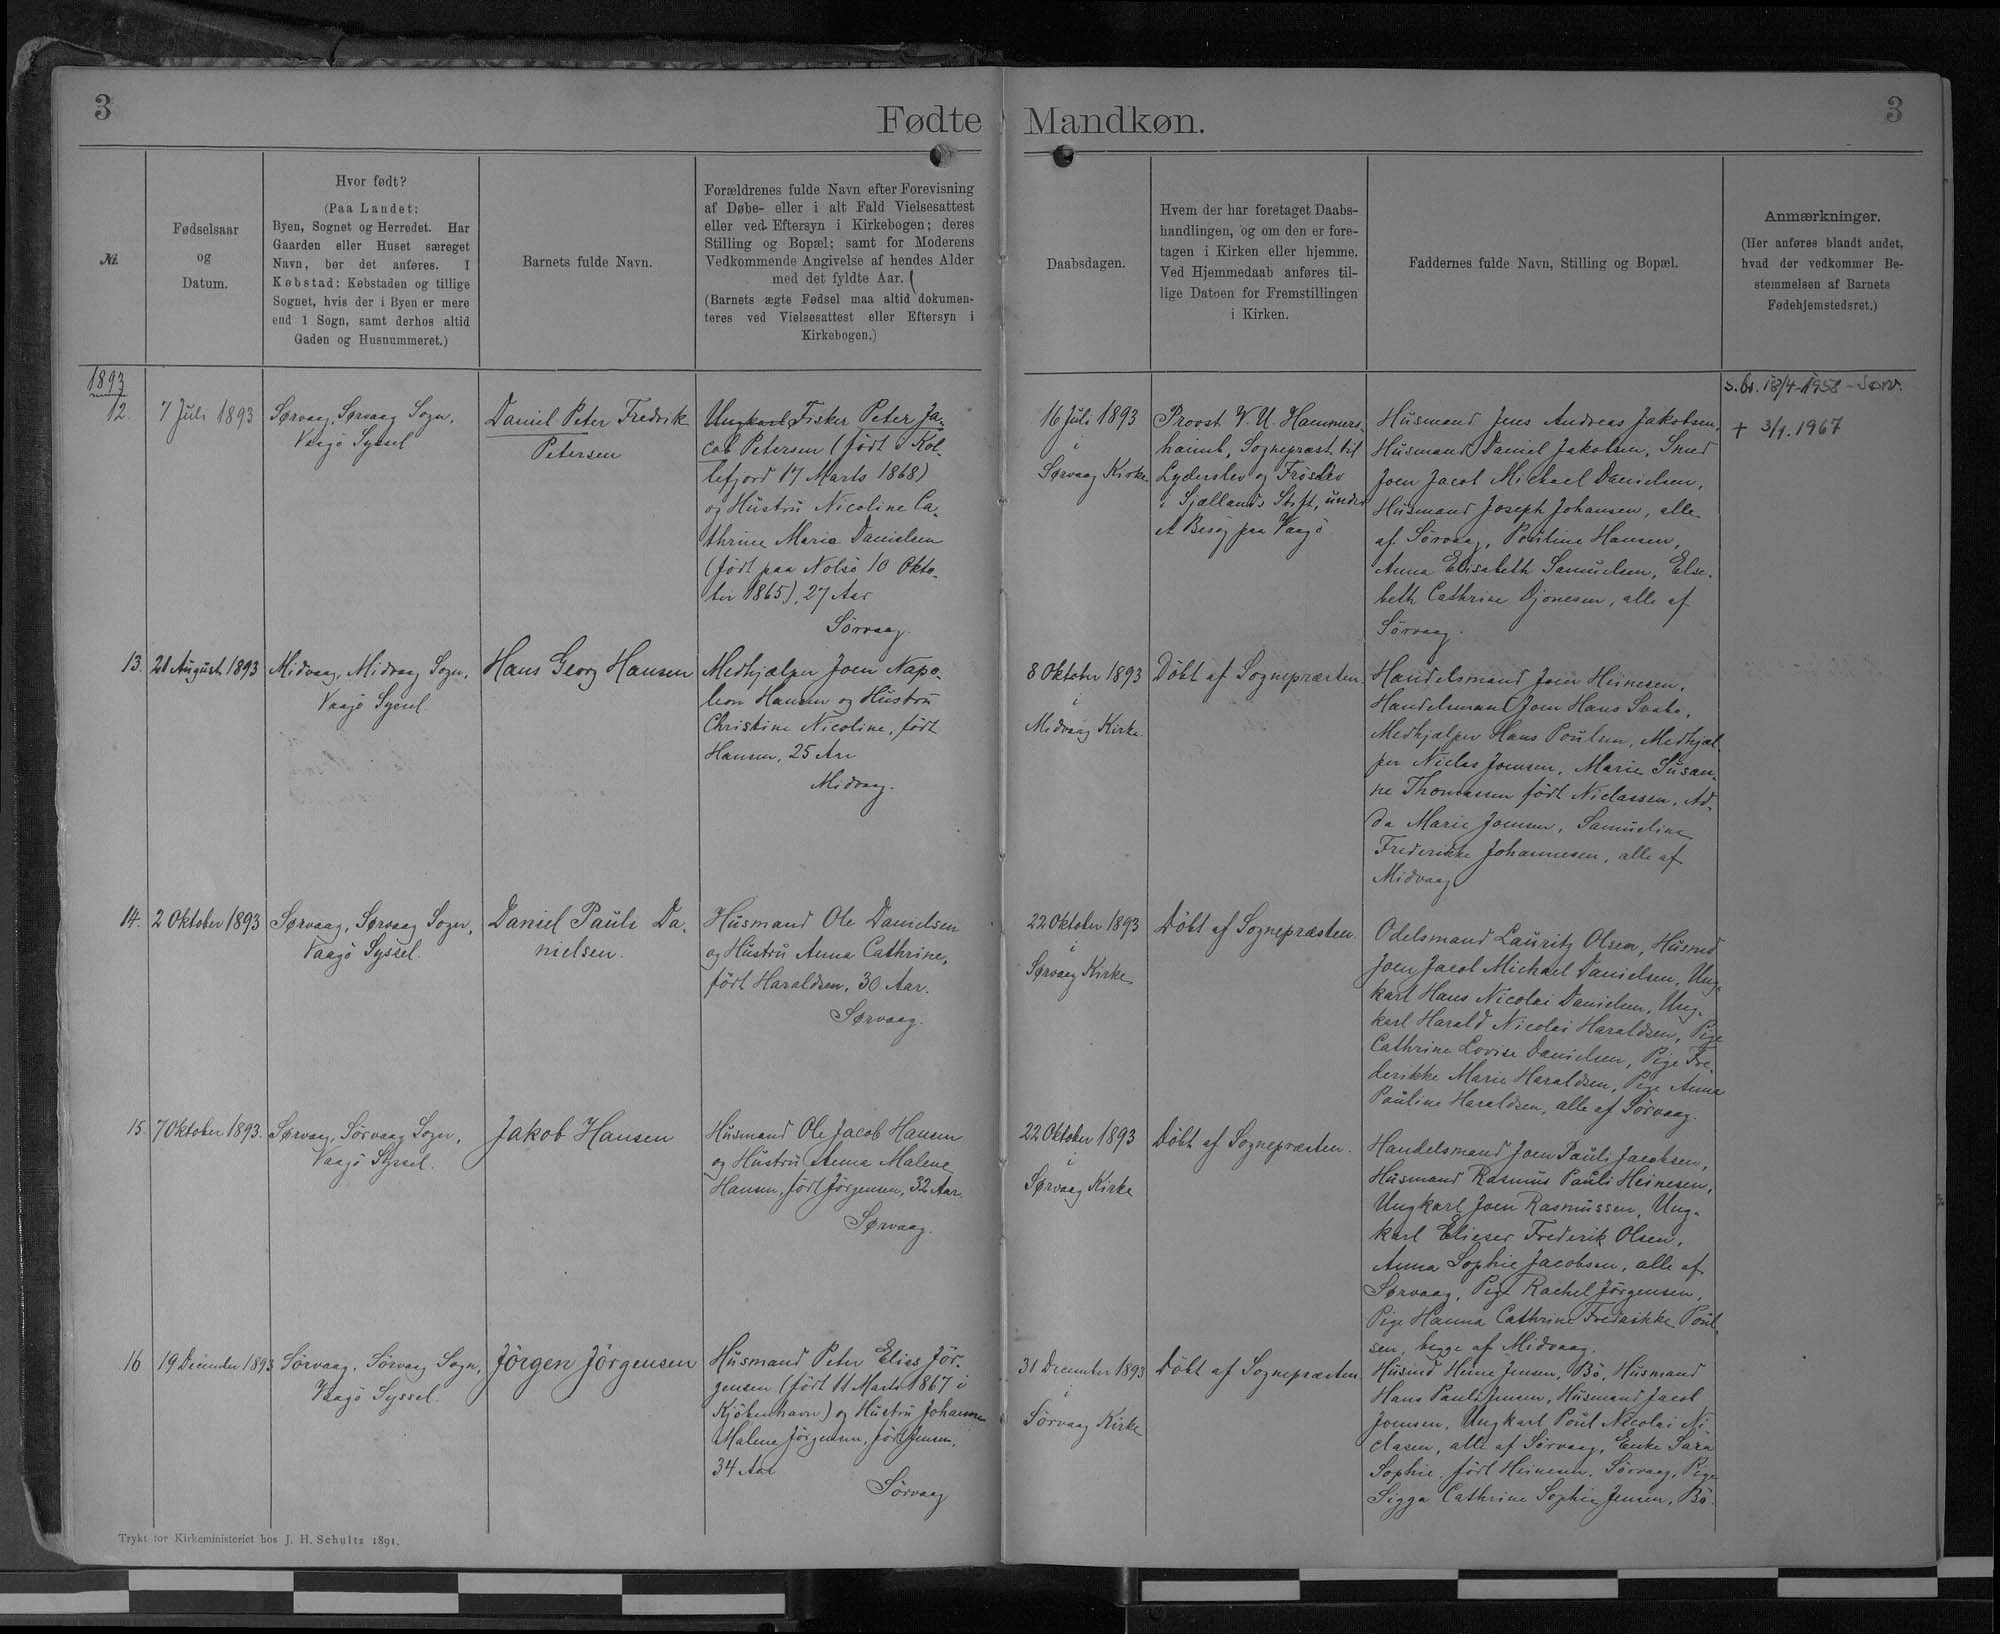 3
Fødte Mandkøn.
3
Nr.
Fødselsaar
og
Datum.
Hvor født?
(Paa Landet:
Byen, Sognet og Herredet. Har
Gaarden eller Huset særeget
Navn, bør det anføres. I
Købstad: Købstaden og tillige
Sognet, hvis der i Byen er mere
end 1 Sogn, samt derhos altid
Gaden og Husnummeret.)
Barnets fulde Navn.
Forældrenes fulde Navn efter Forevisning
af Døbe- eller i alt Fald Vielsesattest
eller ved Eftersyn i Kirkebogen; deres
Stilling og Bopæl; samt for Moderens
Vedkommende Angivelse af hendes Alder
med det fyldte Aar.
(Barnets ægte Fødsel maa altid dokumen-
teres ved Vielsesattest eller Eftersyn i
Kirkebogen.)
Daabsdagen.
Hvem der har foretaget Daabs-
handlingen, og om den er fore-
tagen i Kirken eller hjemme.
Ved Hjemmedaab anføres til-
lige Datoen for Fremstillingen
i Kirken.
Faddernes fulde Navn, Stilling og Bopæl.
Anmærkninger.
(Her anføres blandt andet,
hvad der vedkommer Be-
stemmelsen af Barnets
Fødehjemstedsret.)
1893
12.
7 Juli 1893
Sørvaag, Sørvaag Sogn,
Vaagö Syssel
Daniel Peter Fredrik
Petersen
Ungkarl Fisker Peter Ja-
cob Petersen (født i Kol-
lefjord 17 Marts 1868)
og Hustrü Nicoline Ca-
thrine Maria Danielsen
(født paa Nolsö 10 Okto-
ber 1865), 27 Aar
Sörvaag.
16 Juli 1893
i
Sørvaag Kirke
Provst V. U. Hammers-
haimb, Sognepræst til
Lyderslev og Frøslev
i Sjællands Stift, under
et Besøg paa Vaagö.
Hüsmand Jens Andreas Jakobsen,
Hüsmand Daniel Jakobsen, Smed
Joen Jacob Michael Danielsen,
Hüsmand Joseph Johansen, alle
af Sörvaag, Poüline Hansen,
Anna Elisabeth Samüelsen, Else-
beth Cathrine Djonesen, alle af
Sörvaag.
s. br. 18/4-1958 - Sørv.
+ 3/1. 1967
13.
21 August 1893
Midvaag, Midvaag Sogn,
Vaagö Syssel.
Hans Georg Hansen
Medhjælper Joen Napo-
leon Hansen og Hüstrü
Christine Nicoline, født
Hansen, 25 Aar
Midvaag.
8 Oktober 1893
i
Midvaag Kirke.
Döbt af Sognepræsten.
Handelsmand Joen Heinesen,
Handelsmand Joen Hans Svabo,
Medhjælper Hans Poülsen, Medhjæl-
per Niclas Joensen, Marie Süsan-
ne Thomassen født Niclassen, Ad-
da Marie Joensen, Samüeline
Frederikke Johannesen, alle af
Midvaag
14.
2 Oktober 1893
Sørvaag, Sørvaag Sogn,
Vaagö Syssel.
Daniel Pauli Da-
nielsen.
Hüsmand Ole Danielsen
og Hüstrü Anna Cathrine,
født Haraldsen, 30 Aar.
Sørvaag.
22 Oktober 1893
i
Sørvaag Kirke
Döbt af Sognepræsten.
Odelsmand Lauritz Olsen, Hüsmd
Joen Jacob Michael Danielsen, Ung-
karl Hans Nicolai Danielsen, Ung-
karl Harald Nicolai Haraldsen, Pige
Cathrine Lovise Danielsen, Pige Fre-
derikke Marie Haraldsen, Pige Anna
Pauline Haraldsen, alle af Sörvaag.
15.
7 Oktober 1893.
Sørvaag, Sörvaag Sogn,
Vaagö Syssel.
Jakob Hansen
Hüsmand Ole Jacob Hansen
og Hüstrü Anna Malene
Hansen, født Jörgensen, 32 Aar.
Sørvaag.
22 Oktober 1893
i
Sørvaag Kirke
Döbt af Sognepræsten.
Handelsmand Joen Pauli Jacobsen,
Hüsmand Rasmüs Pauli Heinesen,
Ungkarl Joen Rasmüssen, Ung-
karl Elieser Frederik Olsen,
Anna Sophie Jacobsen, alle af
Sørvaag, Pige Rachel Jörgensen,
Pige Hanna Cathrine Fredrikke Poül-
sen, begge af Midvaag.
16
19 December 1893
Sörvaag, Sörvaag Sogn,
Vaagö Syssel.
Jörgen Jörgensen
Hüsmand Peter Elias Jör-
gensen (født 11 Marts 1867 i
Kjöbenhavn) og Hüstrü Johanne
Malene Jörgensen, født Jensen,
34 Aar
Sörvaag
31 December 1893
i
Sörvaag Kirke
Döbt af Sognepræsten
Hüsmd Heine Jensen, Bö, Hüsmand
Hans Pauli Jensen, Hüsmand Jacob
Joensen, Ungkarl Poül Nicolai Ni-
clasen, alle af Sörvaag, Enke Sara
Sophie, født Heinesen, Sörvaag, Pige
Sigga Cathrine Sophie Jensen, Bö.
Trykt for Kirkeministeriet hos J. H. Schultz 1891.